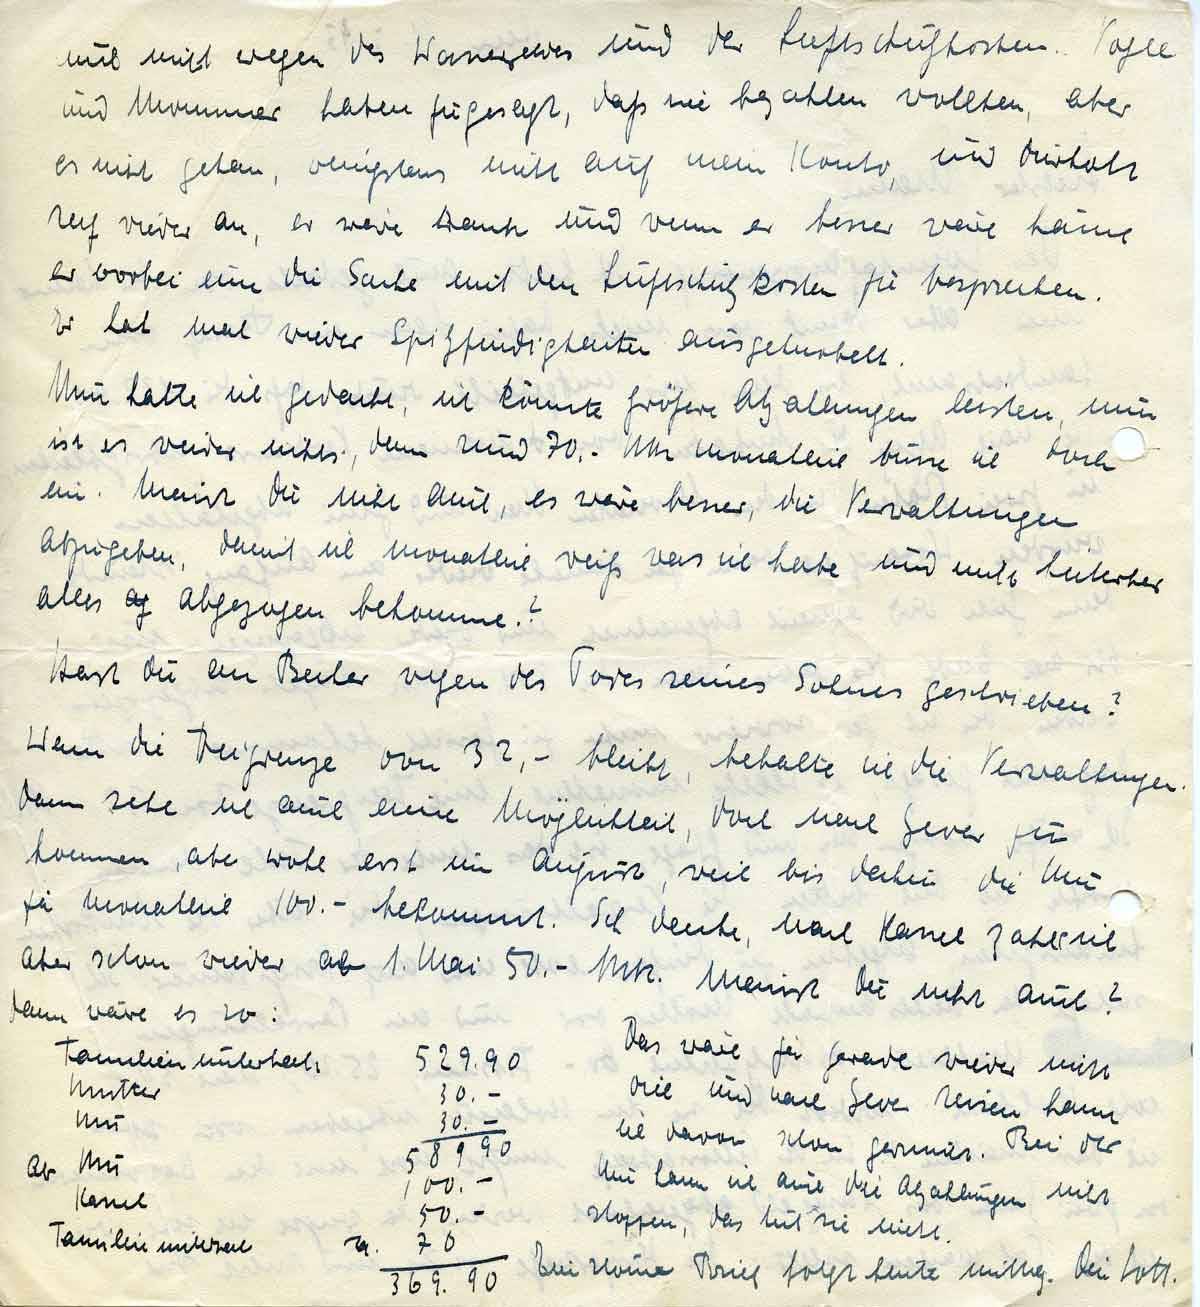 und nicht wegen des Wassergeldes und der Luftschutzkosten. Vogle
und Mommer haben zugesagt, daß sie bezahlen wollten, aber
es nicht getan, wenigstens nicht auf mein Konto, und
rief wieder an, er wäre krank und wenn er besser wäre käme
er vorbei um die Sache mit den Luftschutzkosten zu besprechen.
Er hat mal wieder Spitzfindigkeiten ausgetüftelt.
Nun hatte ich gedacht, ich könnte größere Abzahlungen leisten, nun
ist es wieder nichts, denn rund 70.- Mk monatlich büsse ich doch
ein. Meinst Du nicht auch, es wäre besser, die Verwaltungen
abzugeben, damit ich monatlich weiß was ich habe und nicht hinterher
alles abgezogen bekomme.?
Hast Du an Beiler wegen des Todes seines Sohnes geschrieben?
Wenn die Freigrenze von 32,- bleibt, behalte ich die Verwaltungen.
Dann sehe ich auch eine Möglichkeit, doch nach Gever zu
kommen, aber wohl erst im August, weil bis dahin die Mu
ja monatlich 100.- bekommt. Ich denke, nach Kassel zahle ich
aber schon wieder ab 1. Mai 50.- Mk. Meinst Du nicht auch?
Dann wäre es so:
Familienunterhalt: 529.90
Mutter 30.-
Mu 30.-
589 90
Ab Mu 100.-
Kassel 50.-
Familienunterhalt ca. 70
369.90
Das wäre ja gerade wieder nicht
viel und nach Gever reisen kann
ich davon schon garnicht. Bei der
Mu kann ich auch die Abzahlungen nicht
stoppen, das tut sie nicht.
Ein Brief folgt heute mittag. Dein Lott.